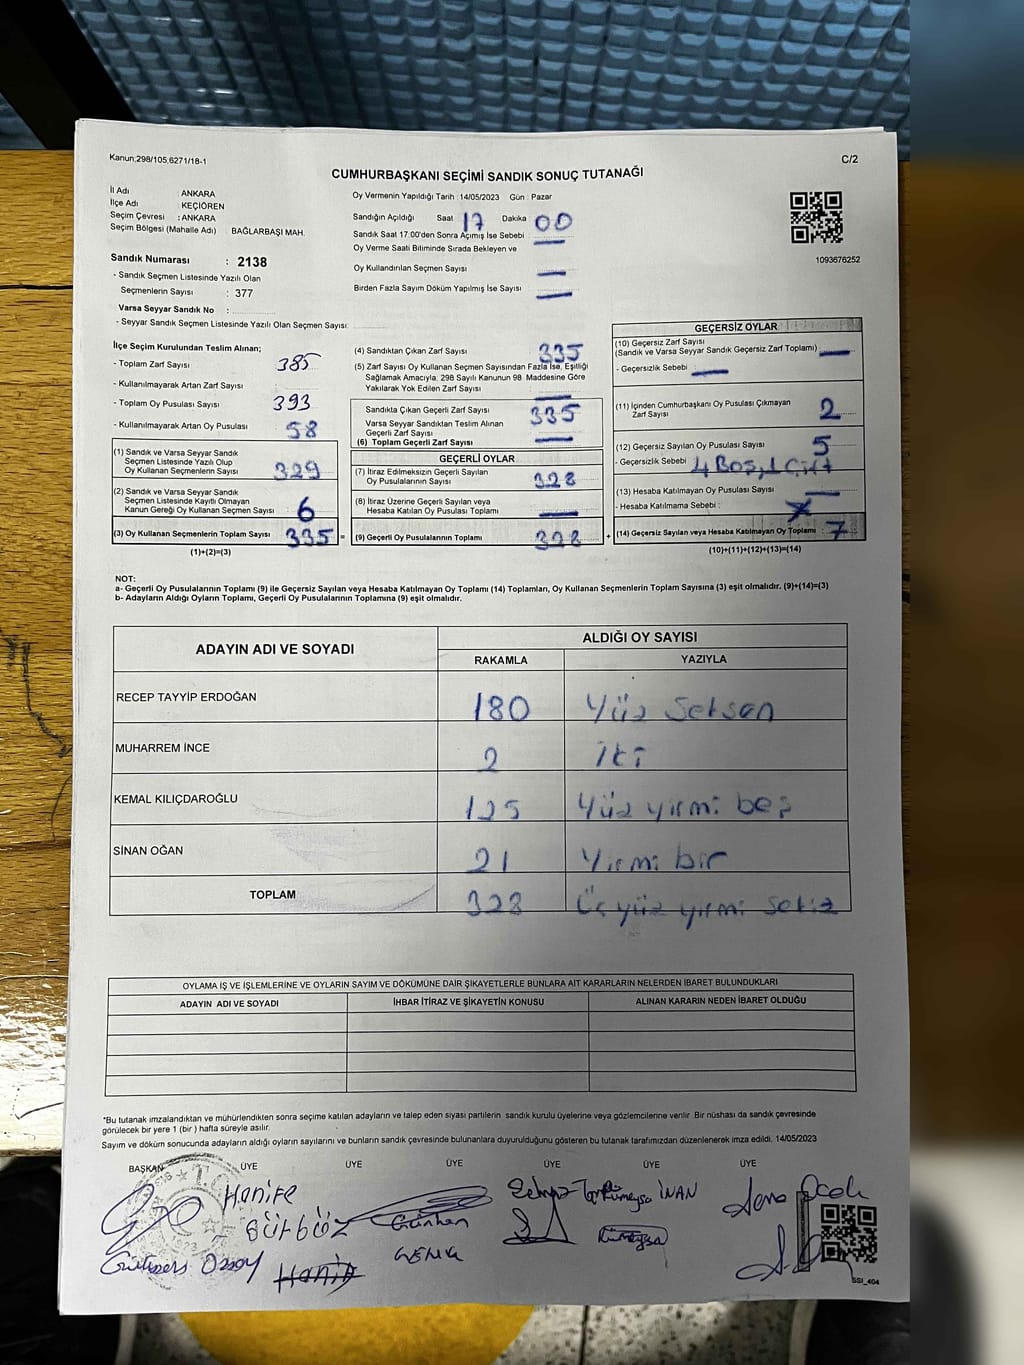 Kanun;298/105;6271/18-1
C/2
CUMHURBAŞKANI SEÇİMİ SANDIK SONUÇ TUTANAĞI
İl Adı : ANKARA
İlçe Adı : KEÇİÖREN
Seçim Çevresi : ANKARA
Seçim Bölgesi (Mahalle Adı) : BAĞLARBAŞI MAH.
Sandık Numarası : 2138
- Sandık Seçmen Listesinde Yazılı Olan
Seçmenlerin Sayısı : 377
Varsa Seyyar Sandık No :
- Seyyar Sandık Seçmen Listesinde Yazılı Olan Seçmen Sayısı:
Oy Vermenin Yapıldığı Tarih :14/05/2023 Gün : Pazar
Sandığın Açıldığı Saat 17 Dakika 00
Sandık Saat 17:00'den Sonra Açımış İse Sebebi —
Oy Verme Saati Bitiminde Sırada Bekleyen ve
Oy Kullandırılan Seçmen Sayısı —
Birden Fazla Sayım Döküm Yapılmış İse Sayısı —
1093676252
İlçe Seçim Kurulundan Teslim Alınan;
- Toplam Zarf Sayısı 385
- Kullanılmayarak Artan Zarf Sayısı
- Toplam Oy Pusulası Sayısı 393
- Kullanılmayarak Artan Oy Pusulası 58
(1) Sandık ve Varsa Seyyar Sandık
Seçmen Listesinde Yazılı Olup
Oy Kullanan Seçmenlerin Sayısı 329
(2) Sandık ve Varsa Seyyar Sandık
Seçmen Listesinde Kayıtlı Olmayan
Kanun Gereği Oy Kullanan Seçmen Sayısı 6
(3) Oy Kullanan Seçmenlerin Toplam Sayısı 335 =
(1)+(2)=(3)
(4) Sandıktan Çıkan Zarf Sayısı 335
(5) Zarf Sayısı Oy Kullanan Seçmen Sayısından Fazla İse, Eşitliği
Sağlamak Amacıyla, 298 Sayılı Kanunun 98 Maddesine Göre
Yakılarak Yok Edilen Zarf Sayısı —
Sandıkta Çıkan Geçerli Zarf Sayısı 335
Varsa Seyyar Sandıktan Teslim Alınan
Geçerli Zarf Sayısı
(6) Toplam Geçerli Zarf Sayısı —
GEÇERLİ OYLAR
(7) İtiraz Edilmeksizin Geçerli Sayılan
Oy Pusulalarının Sayısı 328
(8) İtiraz Üzerine Geçerli Sayılan veya
Hesaba Katılan Oy Pusulası Toplamı —
(9) Geçerli Oy Pusulalarının Toplamı 328 +
GEÇERSİZ OYLAR
(10) Geçersiz Zarf Sayısı
(Sandık ve Varsa Seyyar Sandık Geçersiz Zarf Toplamı) —
- Geçersizlik Sebebi —
(11) İçinden Cumhurbaşkanı Oy Pusulası Çıkmayan
Zarf Sayısı 2
(12) Geçersiz Sayılan Oy Pusulası Sayısı 5
- Geçersizlik Sebebi 4 Boş, 1 Çift
(13) Hesaba Katılmayan Oy Pusulası Sayısı —
- Hesaba Katılmama Sebebi :
(14) Geçersiz Sayılan veya Hesaba Katılmayan Oy Toplamı : 7
(10)+(11)+(12)+(13)=(14)
NOT:
a- Geçerli Oy Pusulalarının Toplamı (9) ile Geçersiz Sayılan veya Hesaba Katılmayan Oy Toplamı (14) Toplamları, Oy Kullanan Seçmenlerin Toplam Sayısına (3) eşit olmalıdır. (9)+(14)=(3)
b- Adayların Aldığı Oyların Toplamı, Geçerli Oy Pusulalarının Toplamına (9) eşit olmalıdır.
ADAYIN ADI VE SOYADI
ALDIĞI OY SAYISI
RAKAMLA YAZIYLA
RECEP TAYYİP ERDOĞAN 180 Yüz Seksen
MUHARREM İNCE 2 iki
KEMAL KILIÇDAROĞLU 125 Yüz yirmi beş
SİNAN OĞAN 21 Yirmi bir
TOPLAM 328 Üçyüz yirmi sekiz
OYLAMA İŞ VE İŞLEMLERİNE VE OYLARIN SAYIM VE DÖKÜMÜNE DAİR ŞİKAYETLERLE BUNLARA AİT KARARLARIN NELERDEN İBARET BULUNDUKLARI
ADAYIN ADI VE SOYADI İHBAR İTİRAZ VE ŞİKAYETİN KONUSU ALINAN KARARIN NEDEN İBARET OLDUĞU
*Bu tutanak imzalandıktan ve mühürlendikten sonra seçime katılan adayların ve talep eden siyasi partilerin sandık kurulu üyelerine veya gözlemcilerine verilir. Bir nüshası da sandık çevresinde
görülecek bir yere 1 (bir ) hafta süreyle asılır.
Sayım ve döküm sonucunda adayların aldığı oyların sayılarını ve bunların sandık çevresinde bulunanlara duyurulduğunu gösteren bu tutanak tarafımızdan düzenlenerek imza edildi. 14/05/2023
BAŞKAN ÜYE ÜYE ÜYE ÜYE ÜYE ÜYE
Hanife Rümeysa İNAN
GÜRBÜZ Günhan Rümeysa
SSI_404